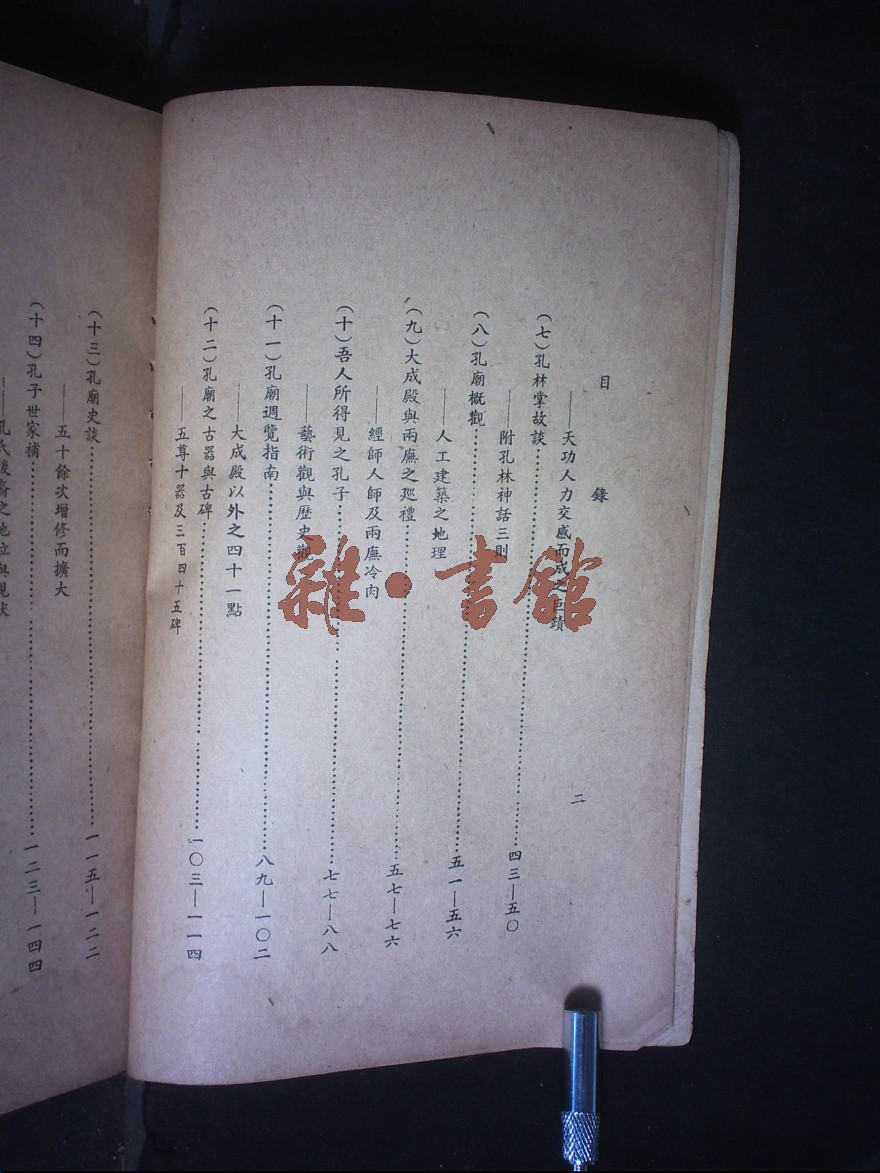 目錄
二
——天功人力交感而成之巨蹟
(七)孔林掌故談……四三—五〇
——附孔林神話三則
(八)孔廟概觀……五一—五六
——人工建築之地理
(九)大成殿與兩廡之巡禮……五七—七六
——經師人師及兩廡冷肉
(十)吾人所得見之孔子……七七—八八
——藝術觀與歷史觀
(十一)孔廟週覽指南……八九—一〇二
——大成殿以外之四十一點
(十二)孔廟之古器與古碑……一〇三—一一四
——五尊十器及三百四十五碑
(十三)孔廟史談……一一五—一二二
——五十餘次增修而擴大
(十四)孔子世家補……一二三—一四四
——孔氏後裔之地位與現狀
雜·書館